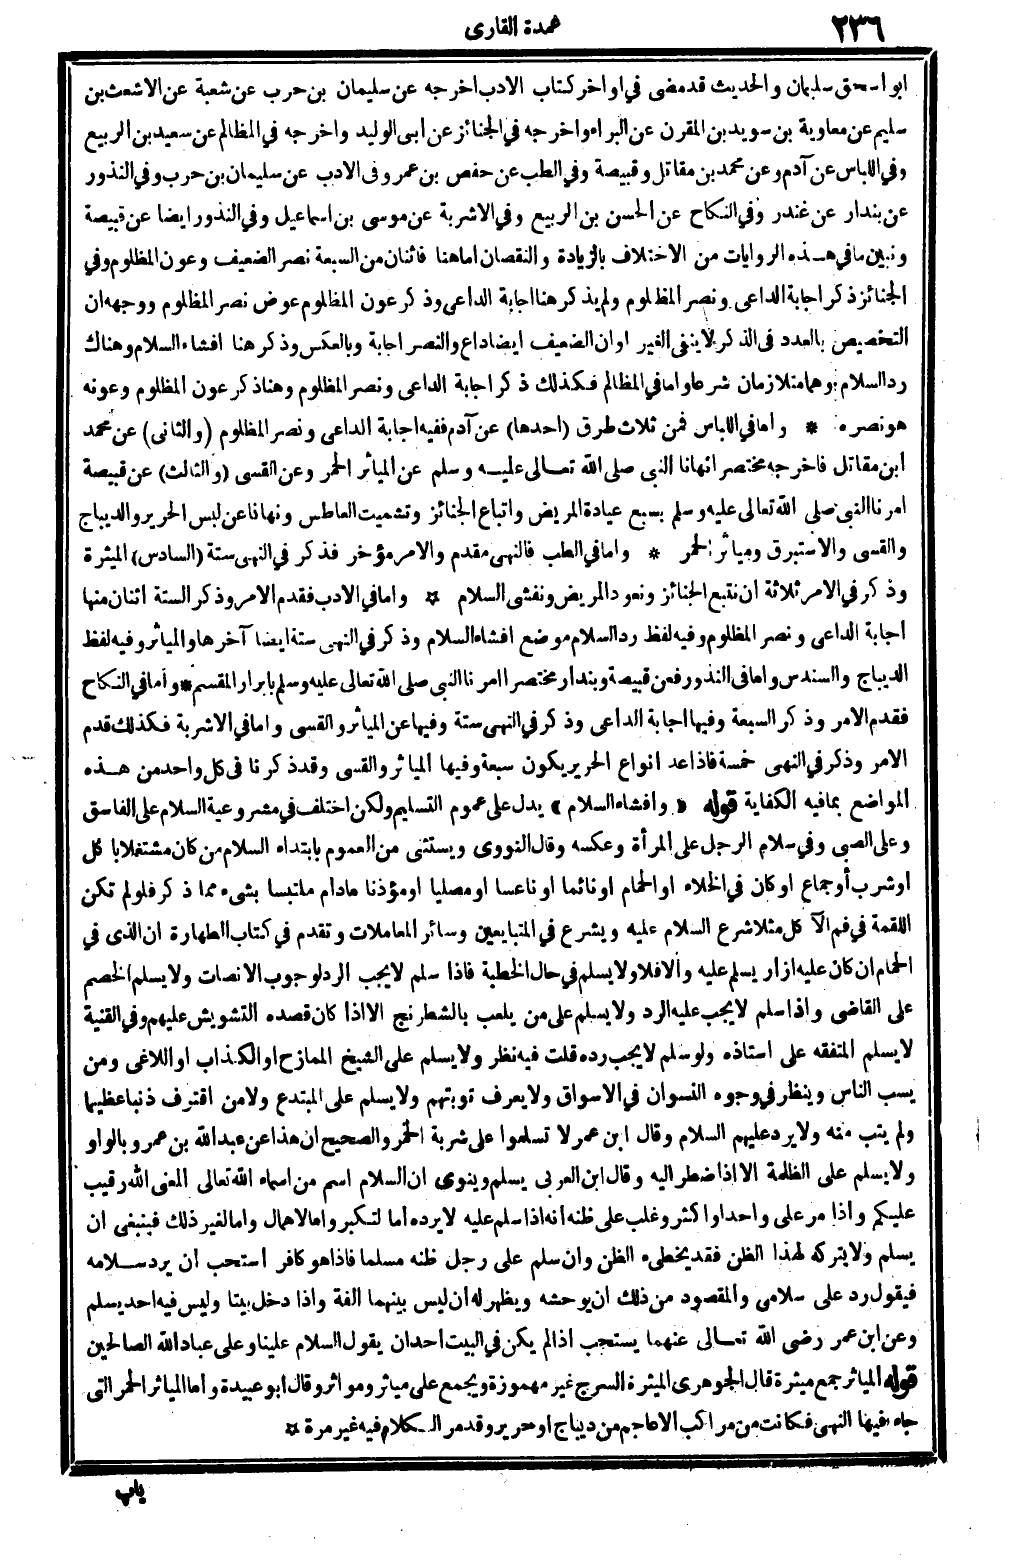 ٢٣٦
عمدة القارى
ابو اسحق سليمان والحديث قد مضى فى اواخر كتاب الادب اخرجه عن سليمان بن حرب عن شعبة عن الاشعث بن
سليم عن معاوية بن سويد بن المقرن عن البراء واخرجه فى الجنائز عن ابى الوليد واخرجه فى المظالم عن سعيد بن الربيع
وفى اللباس عن آدم وعن محمد بن مقاتل وقبيصة وفى الطب عن حفص بن عمر وفى الادب عن سليمان بن حرب وفى النذور
عن بندار عن غندر وفى النكاح عن الحسن بن الربيع وفى الاشربة عن موسى بن اسماعيل وفى النذور ايضا عن قبيصة
ونبين مافى هذه الروايات من الاختلاف بالزيادة والنقصان اماهنا فاثنان من السبعة نصر الضعيف وعون المظلوم وفى
الجنائز ذكر اجابة الداعى ونصر المظلوم ولم يذكر هنا اجابة الداعى وذكر عون المظلوم عوض نصر المظلوم ووجهه ان
التخصيص بالعدد فى الذكر لا ينفى الغير او ان الضعيف ايضا داع والنصر اجابة وبالعكس وذكر هنا افشاء السلام وهناك
رد السلام وهما متلازمان شرعا واما فى المظالم فكذلك ذكر اجابة الداعى ونصر المظلوم وهنا ذكر عون المظلوم وعونه
هو نصره * واما فى اللباس فمن ثلاث طرق (احدها) عن آدم ففيه اجابة الداعى ونصر المظلوم (والثانى) عن محمد
ابن مقاتل فاخرجه مختصرا نهانا النبى صلى الله تعالى عليه وسلم عن المياثر الحمر وعن القسى (والثالث) عن قبيصة
امرنا النبى صلى الله تعالى عليه وسلم بسبع عيادة المريض واتباع الجنائز وتشميت العاطس ونهانا عن لبس الحرير والديباج
والقسى والاستبرق ومياثر الحمر * واما فى الطب فالنهى مقدم والامر مؤخر فذكر فى النهى ستة (السادس) الميثرة
وذكر فى الامر ثلاثة ان نتبع الجنائز ونعود المريض ونفشى السلام * واما فى الادب فقدم الامر وذكر الستة اثنان منها
اجابة الداعى ونصر المظلوم وفيه لفظ رد السلام موضع افشاء السلام وذكر فى النهى ستة ايضا آخرها والمياثر وفيه لفظ
الديباج والسندس واما فى النذور فعن قبيصة وبندار مختصرا امرنا النبى صلى الله تعالى عليه وسلم بابرار المقسم * واما فى النكاح
فقدم الامر وذكر السبعة وفيها اجابة الداعى وذكر فى النهى ستة وفيها عن المياثر والقسى واما فى الاشربة فكذلك قدم
الامر وذكر فى النهى خمسة فاذا عد انواع الحرير يكون سبعة وفيها المياثر والقسى وقد ذكرنا فى كل واحد من هذه
المواضع بما فيه الكفاية قوله «وافشاء السلام» يدل على عموم التسليم ولكن اختلف فى مشروعية السلام على الفاسق
وعلى الصبى وفى سلام الرجل على المرأة وعكسه وقال النووى ويستثنى من العموم بابتداء السلام من كان مشتغلا با كل
او شرب أو جماع او كان فى الخلاء او الحمام او نائما او ناعسا او مصليا او مؤذنا مادام ملتبسا بشىء مما ذكر فلو لم تكن
اللقمة فى فم الآكل مثلا شرع السلام عليه ويشرع فى المتبايعين وسائر المعاملات وتقدم فى كتاب الطهارة ان الذى فى
الحمام ان كان عليه ازار يسلم عليه والافلا ولا يسلم فى حال الخطبة فاذا سلم لا يجب الرد لوجوب الانصات ولا يسلم الخصم
على القاضى واذا سلم لا يجب عليه الرد ولا يسلم على من يلعب بالشطرنج الا اذا كان قصده التشويش عليهم وفى القنية
لا يسلم المتفقه على استاذه ولو سلم لا يجب رده قلت فيه نظر ولا يسلم على الشيخ الممازح او الكذاب او اللاغى ومن
يسب الناس وينظر فى وجوه النسوان فى الاسواق ولا يعرف توبتهم ولا يسلم على المبتدع ولا من اقترف ذنبا عظيما
ولم يتب منه ولا يرد عليهم السلام وقال ابن عمر لا تسلموا على شربة الخمر والصحيح ان هذا عن عبد الله بن عمرو بالواو
ولا يسلم على الظلمة الا اذا ضطر اليه وقال ابن العربى يسلم وينوى ان السلام اسم من اسماء الله تعالى المعنى الله رقيب
عليكم واذا مر على واحد او اكثر وغلب على ظنه أنه اذا سلم عليه لا يرده أما لتكبر واما لاهمال واما لغير ذلك فينبغى ان
يسلم ولا يتركه لهذا الظن فقد يخطىء الظن وان سلم على رجل ظنه مسلما فاذا هو كافر استحب ان يرد سلامه
فيقول رد على سلامى والمقصود من ذلك ان يوحشه ويظهر له أن ليس بينهما الفة واذا دخل بيتا وليس فيه احد يسلم
وعن ابن عمر رضى الله تعالى عنهما يستحب اذا لم يكن فى البيت احد ان يقول السلام علينا وعلى عباد الله الصالحين
قوله المياثر جمع ميثرة قال الجوهرى الميثرة السرج غير مهموزة ويجمع على مياثر ومواثر وقال ابو عبيدة واما المياثر الحمر التى
جاء فيها النهى فكانت من مراكب الاعاجم من ديباج او حرير وقد مر الكلام فيه غير مرة *
باب